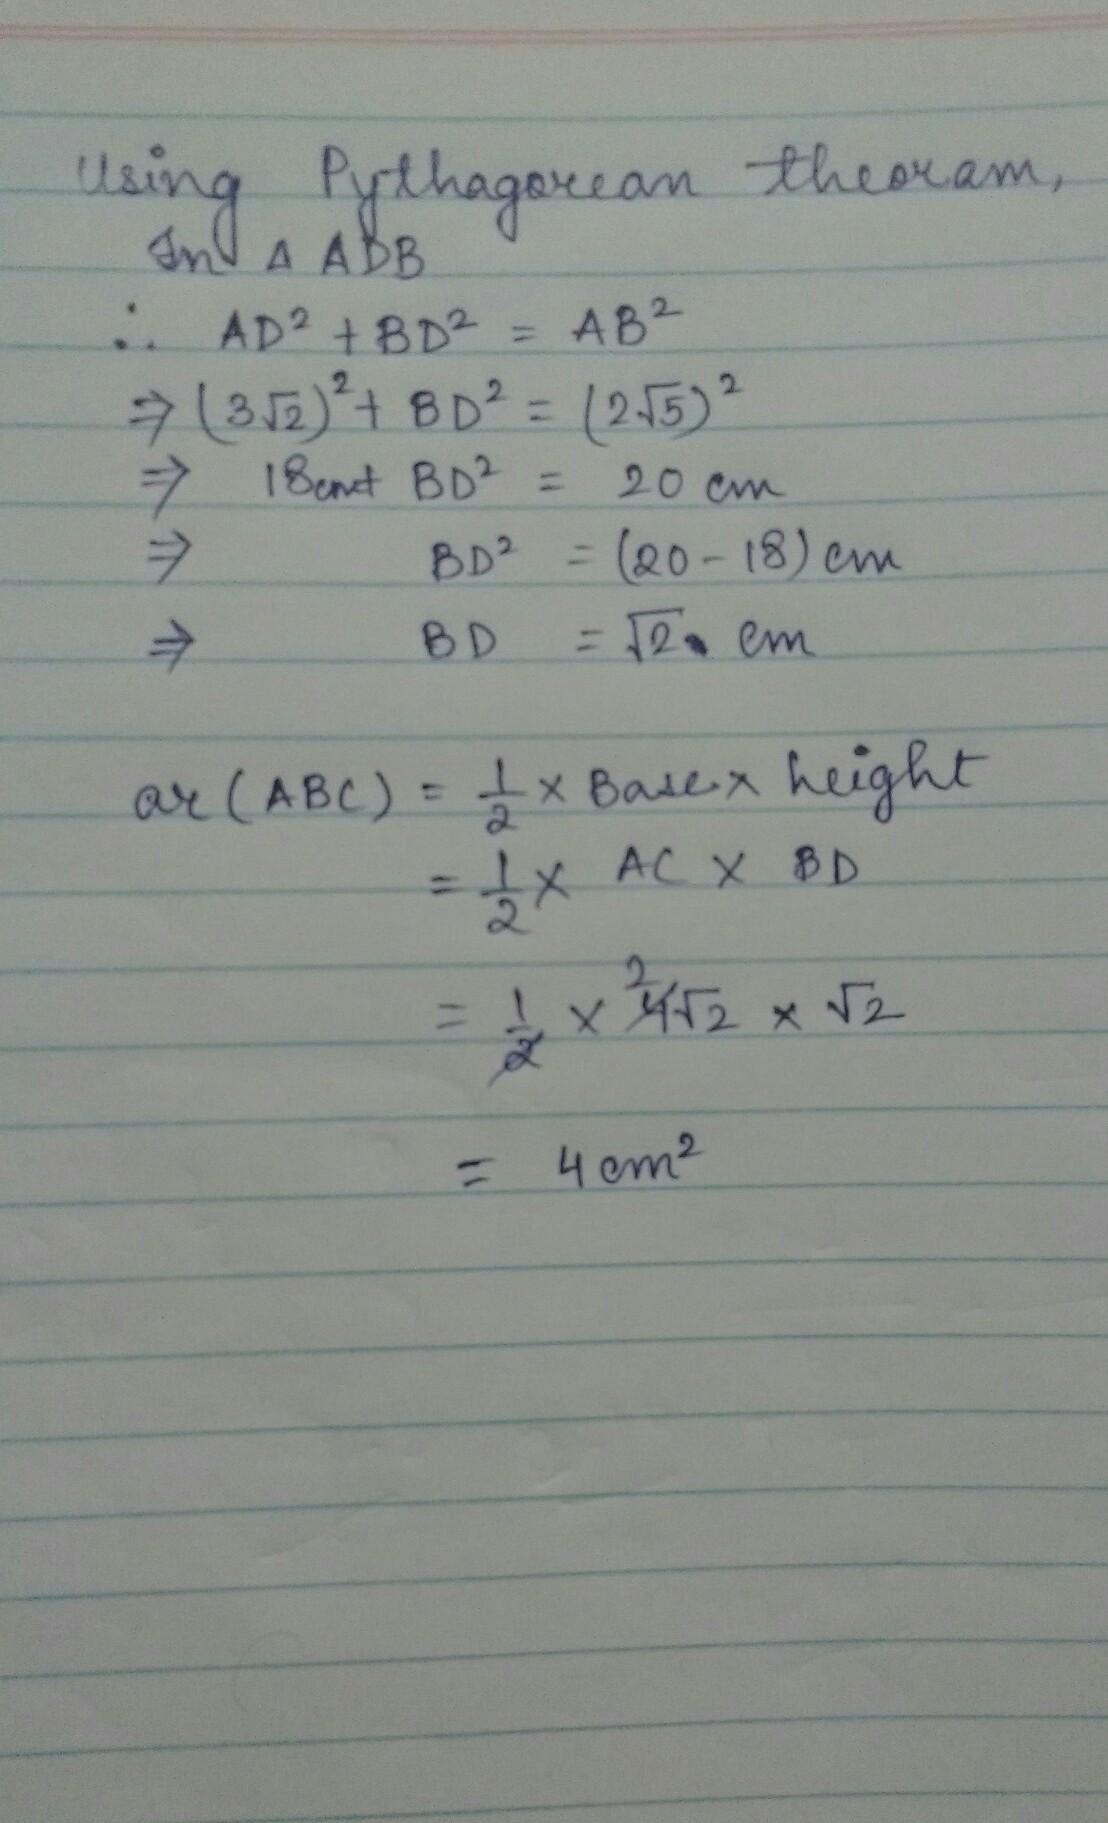 Using Pythagorean theoram,
In Δ ADB
∴ AD² + BD² = AB²
⇒ (3√2)² + BD² = (2√5)²
⇒ 18cm + BD² = 20 cm
⇒ BD² = (20 - 18) cm
⇒ BD = √2 cm
ar (ABC) = 1/2 × Base × height
= 1/2 × AC × BD
= 1/2 × 2 4√2 × √2
= 4 cm²